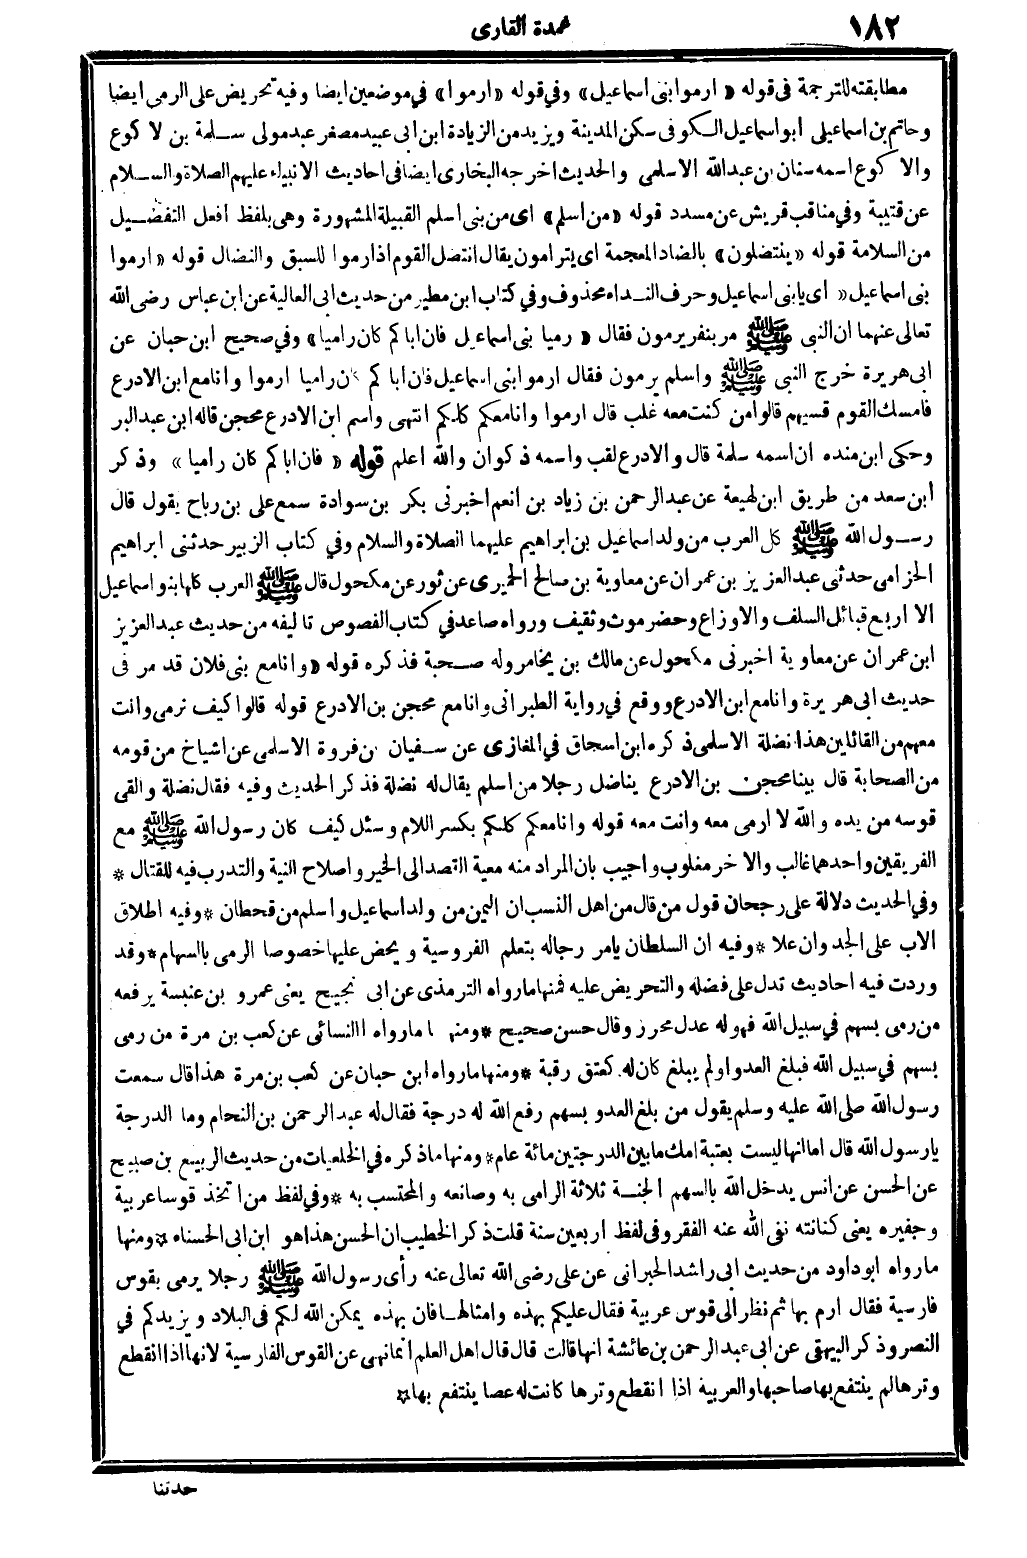 ١٨٢
عمدة القارى
مطابقته للترجمة فى قوله « ارموا بنى اسماعيل» وفي قوله «ارموا» في موضعين ايضا وفيه تحريض على الرمى ايضا
وحاتم بن اسماعيلى ابو اسماعيل الكوفى سكن المدينة ويزيد من الزيادة ابن ابى عبيد مصغر عبد مولى سلمة بن لا كوع
والا كوع اسمه سنان بن عبدالله الاسلمى والحديث اخرجه البخارى ايضا فى احاديث الانبياء عليهم الصلاة والسلام
عن قتيبة وفي مناقب قريش عن مسدد قوله «من اسلم» اى من بنى اسلم القبيلة المشهورة وهى بلفظ افعل التفضيل
من السلامة قوله «ينتضلون» بالضاد المعجمة اى يترامون يقال انتضل القوم اذا رموا للسبق والنضال قوله «ارموا
بنى اسماعيل» اى يا بنى اسماعيل وحرف النداء محذوف وفي كتاب ابن مطير من حديث ابى العالية عن ابن عباس رضى الله
تعالى عنهما ان النبى ﷺ مر بنفر يرمون فقال « رميا بنى اسماعيل فان اباكم كان راميا» وفي صحيح ابن حبان عن
ابى هريرة خرج النبى ﷺ واسلم يرمون فقال ارموا بنى اسماعيل فان اباكم كان راميا ارموا وانا مع ابن الادرع
فامسك القوم قسيهم قالوا من كنت معه غلب قال ارموا وانا معكم كلكم انتهى واسم ابن الادرع محجن قاله ابن عبد البر
وحكى ابن منده ان اسمه سلمة قال والادرع لقب واسمه ذكوان والله اعلم قوله « فان اباكم كان راميا » وذكر
ابن سعد من طريق ابن لهيعة عن عبد الرحمن بن زياد بن انعم اخبرنى بكر بن سوادة سمع على بن رباح يقول قال
رسول الله ﷺ كل العرب من ولد اسماعيل بن ابراهيم عليهما الصلاة والسلام وفي كتاب الزبير حدثنى ابراهيم
الحزامى حدثنى عبد العزيز بن عمران عن معاوية بن صالح الحميرى عن ثور عن مكحول قال ﷺ العرب كلها بنو اسماعيل
الا اربع قبائل السلف والاوزاع وحضرموت وثقيف ورواه صاعد في كتاب الفصوص تاليفه من حديث عبد العزيز
ابن عمران عن معاوية اخبرنى مكحول عن مالك بن يخامر وله صحبة فذكره قوله «وانا مع بنى فلان قد مر فى
حديث ابى هريرة وانا مع ابن الادرع ووقع في رواية الطبرانى وانا مع محجن بن الادرع قوله قالوا كيف نرمى وانت
معهم من القائلين هذا نضلة الاسلمى ذكره ابن اسحاق في المغازى عن سفيان بن فروة الاسلمى عن اشياخ من قومه
من الصحابة قال بينا محجن بن الادرع يناضل رجلا من اسلم يقال له نضلة فذكر الحديث وفيه فقال نضلة والقى
قوسه من يده والله لا ارمى معه وانت معه قوله وانا معكم كلكم بكسر اللام وسئل كيف كان رسول الله ﷺ مع
الفريقين واحدهما غالب والاخر مغلوب واجيب بان المراد منه معية القصد الى الخير واصلاح النية والتدرب فيه للقتال *
وفي الحديث دلالة على رجحان قول من قال من اهل النسب ان اليمن من ولد اسماعيل واسلم من قحطان *وفيه اطلاق
الاب على الجد وان علا *وفيه ان السلطان يامر رجاله بتعلم الفروسية ويحض عليها خصوصا الرمى بالسهام*وقد
وردت فيه احاديث تدل على فضله والتحريض عليه فمنها مارواه الترمذى عن ابى نجيح يعنى عمرو بن عنبسة يرفعه
من رمى بسهم في سبيل الله فهو له عدل محرز وقال حسن صحيح *ومنها مارواه النسائى عن كعب بن مرة من رمى
بسهم في سبيل الله فبلغ العدو او لم يبلغ كان له كعتق رقبة *ومنها مارواه ابن حبان عن كعب بن مرة هذا قال سمعت
رسول الله صلى الله عليه وسلم يقول من بلغ العدو بسهم رفع الله له درجة فقال له عبد الرحمن بن النحام وما الدرجة
يارسول الله قال اما انها ليست بعتبة امك ما بين الدرجتين مائة عام*ومنها ماذكره في الخلعيات من حديث الربيع بن صبيح
عن الحسن عن انس يدخل الله بالسهم الجنة ثلاثة الرامى به وصانعه والمحتسب به *وفي لفظ من اتخذ قوسا عربية
وجفيره يعنى كنانته نفى الله عنه الفقر وفى لفظ اربعين سنة قلت ذكر الخطيب ان الحسن هذا هو ابن ابى الحسناء *ومنها
مارواه ابو داود من حديث ابى راشد الحبرانى عن على رضى الله تعالى عنه رأى رسول الله ﷺ رجلا يرمى بقوس
فارسية فقال ارم بها ثم نظر الى قوس عربية فقال عليكم بهذه وامثالها فان بهذه يمكن الله لكم فى البلاد ويزيدكم في
النصر وذكر البيهقى عن ابى عبد الرحمن بن عائشة انها قالت قال قال اهل العلم انما نهى عن القوس الفارسية لانها اذا انقطع
وترها لم ينتفع بها صاحبها والعربية اذا انقطع وترها كانت له عصا ينتفع بها*
حدثنا